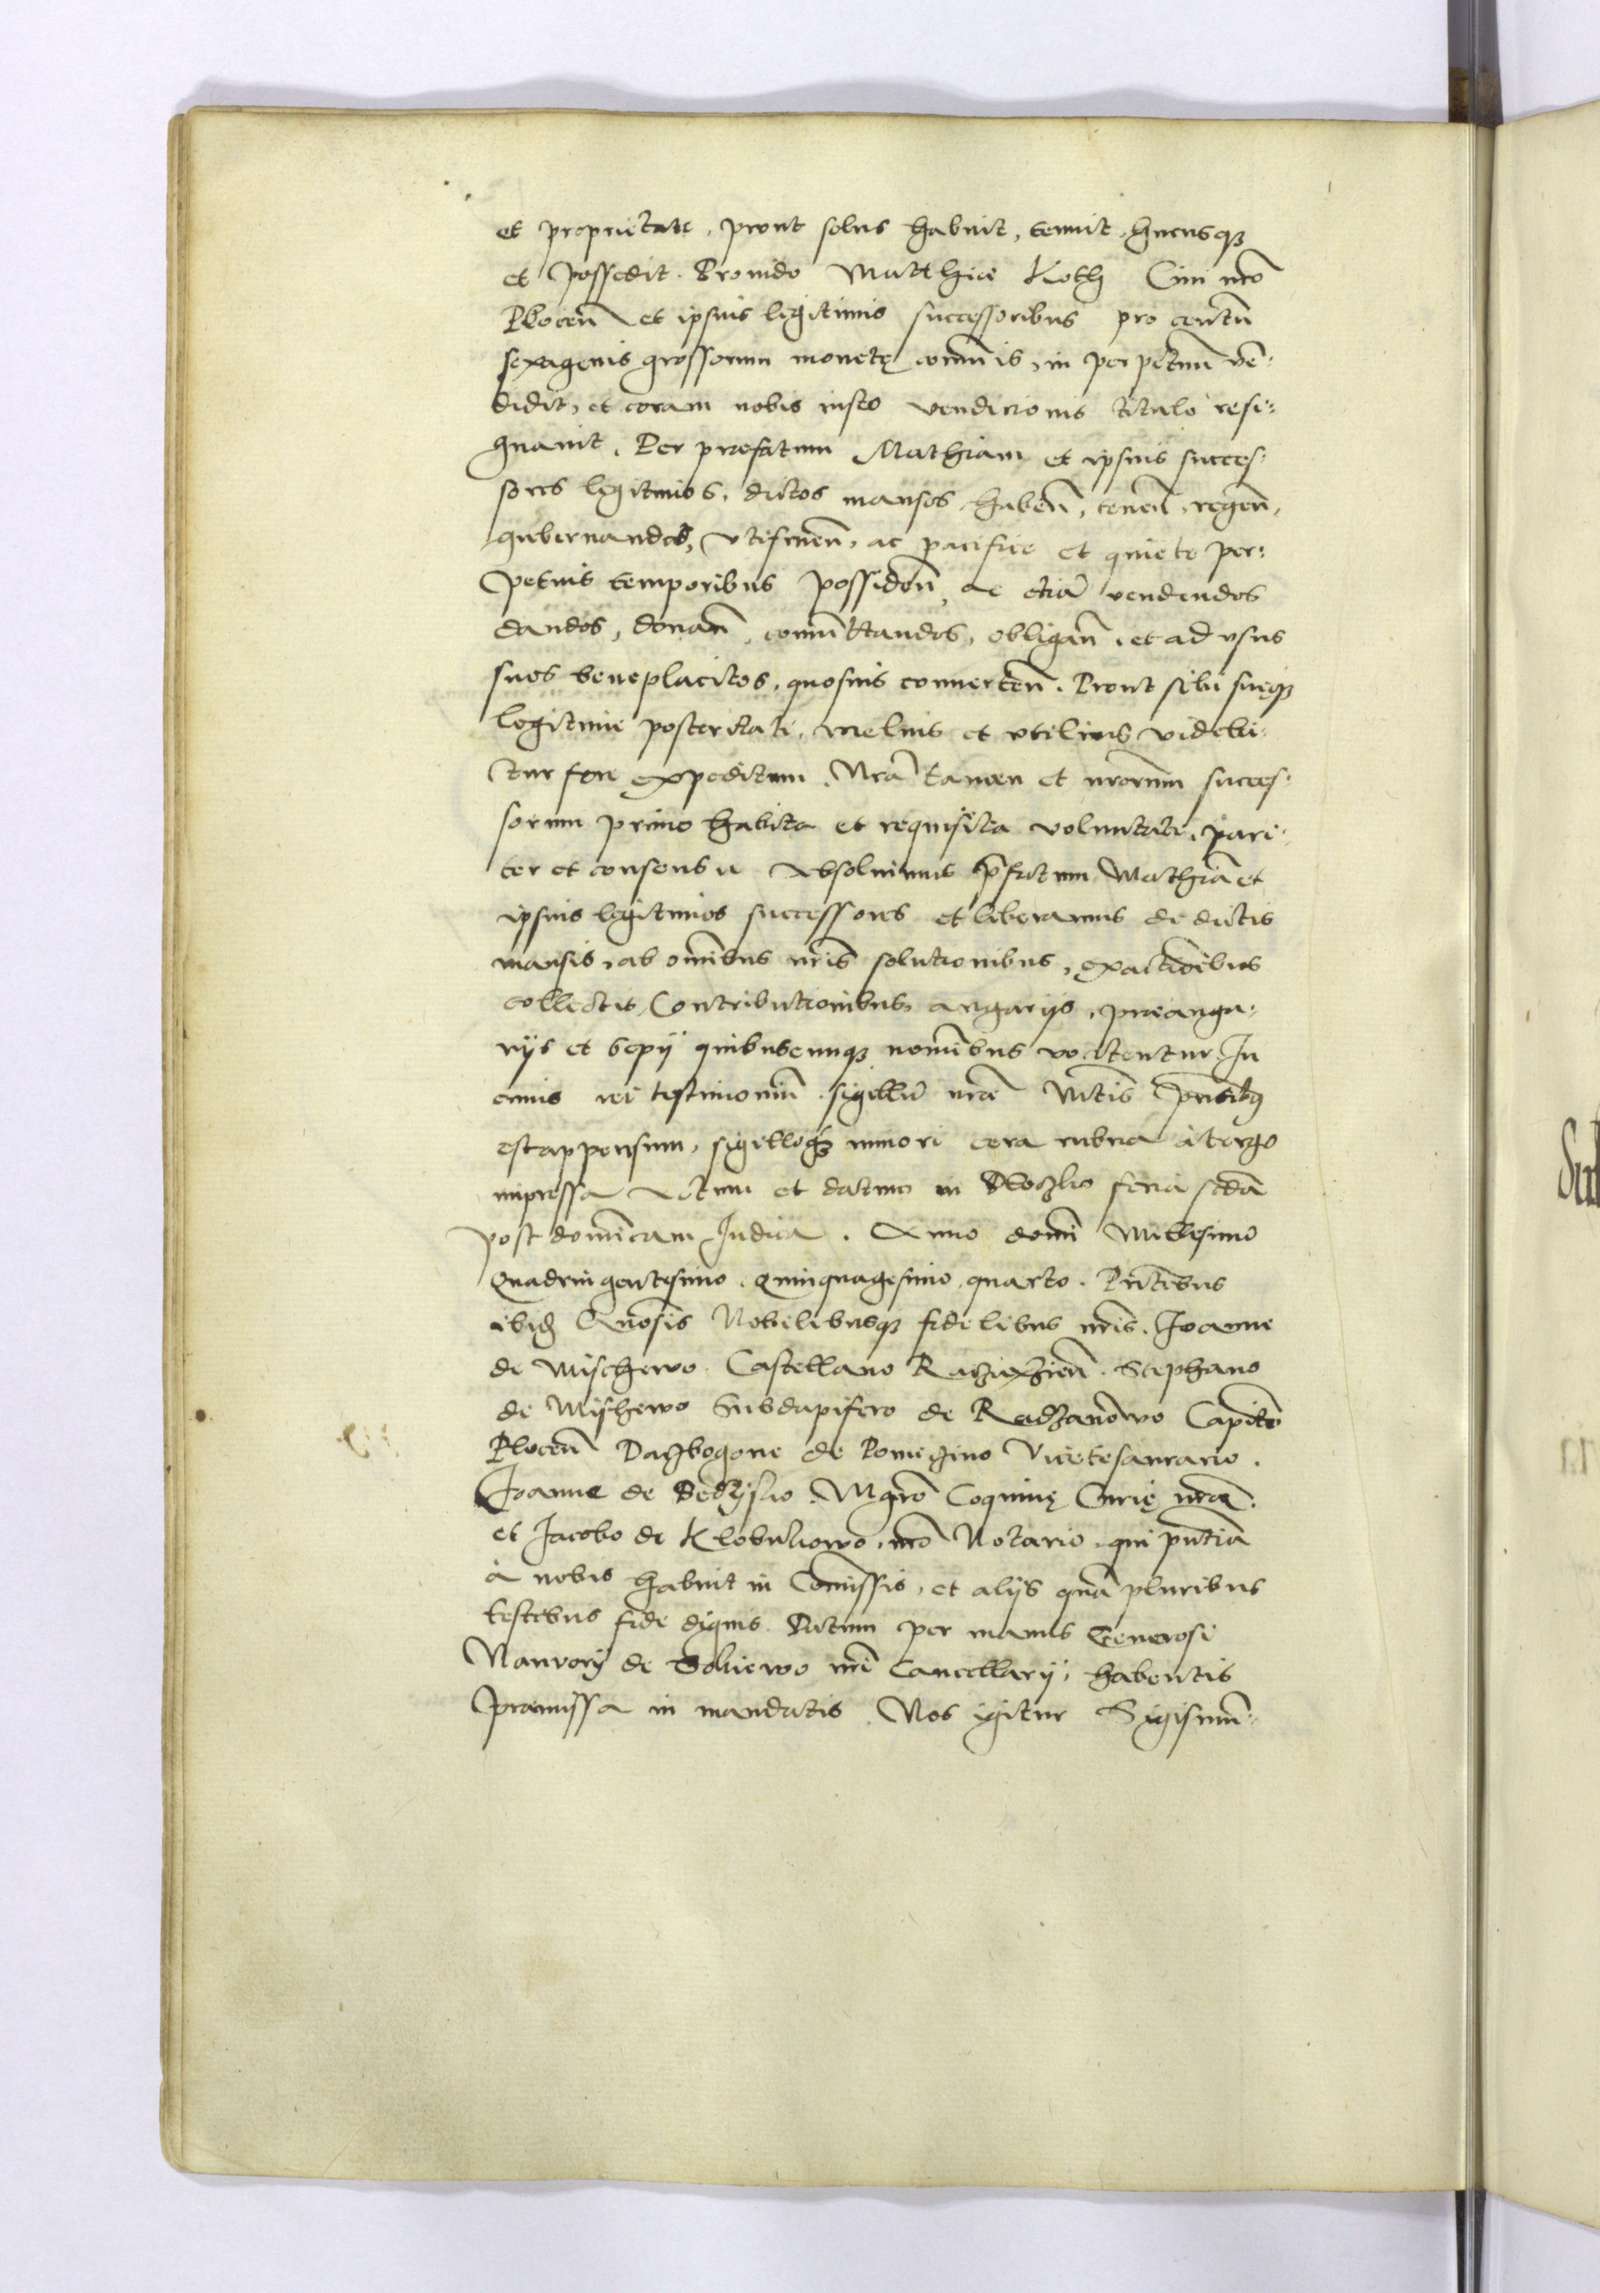 et proprietate, prout solus habuit, tenuit, hucusq3
et possedit. Prouido Matthiae Koth Ciui nr̃o
Plocen̄ et ipsius legitimis successoribus pro centū
sexagenis grossorum monetę com̄unis, in perpetuū vē-
didit, et coram nobis iusto vendicionis titulo resi-
gnauit. Per praefatum Mathiam et ipsius succes-
sores legitimos, dictos mansos haben̄, tenen̄, regen̄,
gubernandos, vtifruen̄, ac pacifice et quiete per-
petuis temporibus possiden̄, ac etiā vendendos
dandos, donan̄, com̄uttandos, obligan̄, et ad vsus
suos beneplacitos, quosuis conuerten̄. Prout sibi suęq3
legitime posteritati, melius et vtilius videbi-
tur fore expeditum. Nr̄a tamen et nr̄orum succes-
sorum primo habita et requisita voluntate, pari-
ter et consensu Absoluimus p̄fatum Mathiā et
ipsius legitimos successores et liberamus de dictis
mansis, ab om̄ibus nr̄is solutionibus, exactiōibus
collectis, Contributionibus angarijs, praeanga-
rijs et sepÿ quibuscunq3 nomībus vocitentur. In
cuius rei testimoniū sigillū nr̄ē Mtis p̄ntibꝫ
est appensum, sigilloq3 minori cera rubra à tergo
impressa Actum et datum in feria scdā
post dominicam Iudica. Anno domī Millesimo
Quadringentesimo quinquagesimo quarto. Pn̄tibus
ibid Gn̄osis Nobilibusq3 fidelibus nr̄is. Joanne
de Mischewo Castellano Raczÿazien̄. Stephano
de Mischewo Subdapifero de Radzanowo Capitō
Plocen̄ Daczbogone de Pomiezino Vicetesaurario.
Joanne de Mgr̄o Coquinę Curię nr̄ē.
et Jacobo de Klobukowo, nr̄o Notario, qui pn̄tiā
à nobis habuit in Com̄issis, et alijs quā pluribus
testibus fide dignis. Datum per manus Generosi
Nauvoÿ de nr̄i Cancellarÿ, habentis
praemissa in mandatis. Nos igitur Sigismū-